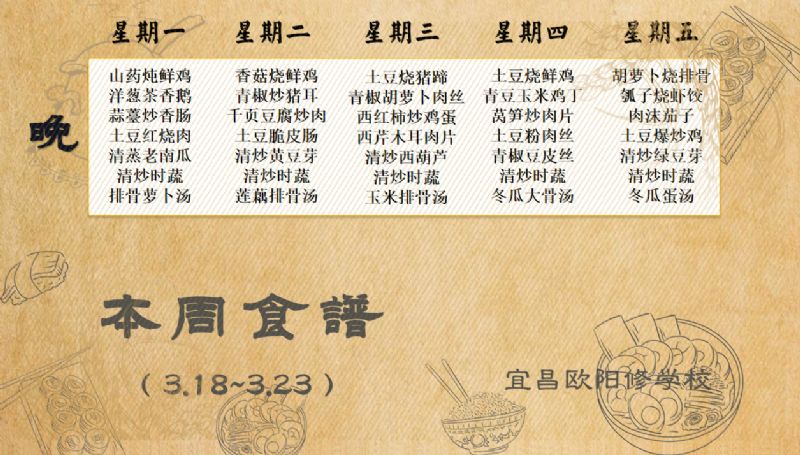 星期一 星期二 星期三 星期四 星期五
晚
山药炖鲜鸡 香菇烧鲜鸡 土豆烧猪蹄 土豆烧鲜鸡 胡萝卜烧排骨
洋葱茶香鹅 青椒炒猪耳 青椒胡萝卜肉丝 青豆玉米鸡丁 瓠子烧虾饺
蒜薹炒香肠 千页豆腐炒肉 西红柿炒鸡蛋 莴笋炒肉片 肉沫茄子
土豆红烧肉 土豆脆皮肠 西芹木耳肉片 土豆粉肉丝 土豆爆炒鸡
清蒸老南瓜 清炒黄豆芽 清炒西葫芦 青椒豆皮丝 清炒绿豆芽
清炒时蔬 清炒时蔬 清炒时蔬 清炒时蔬 清炒时蔬
排骨萝卜汤 莲藕排骨汤 玉米排骨汤 冬瓜大骨汤 冬瓜蛋汤
本周食譜
（3.18~3.23）
宜昌欧阳修学校